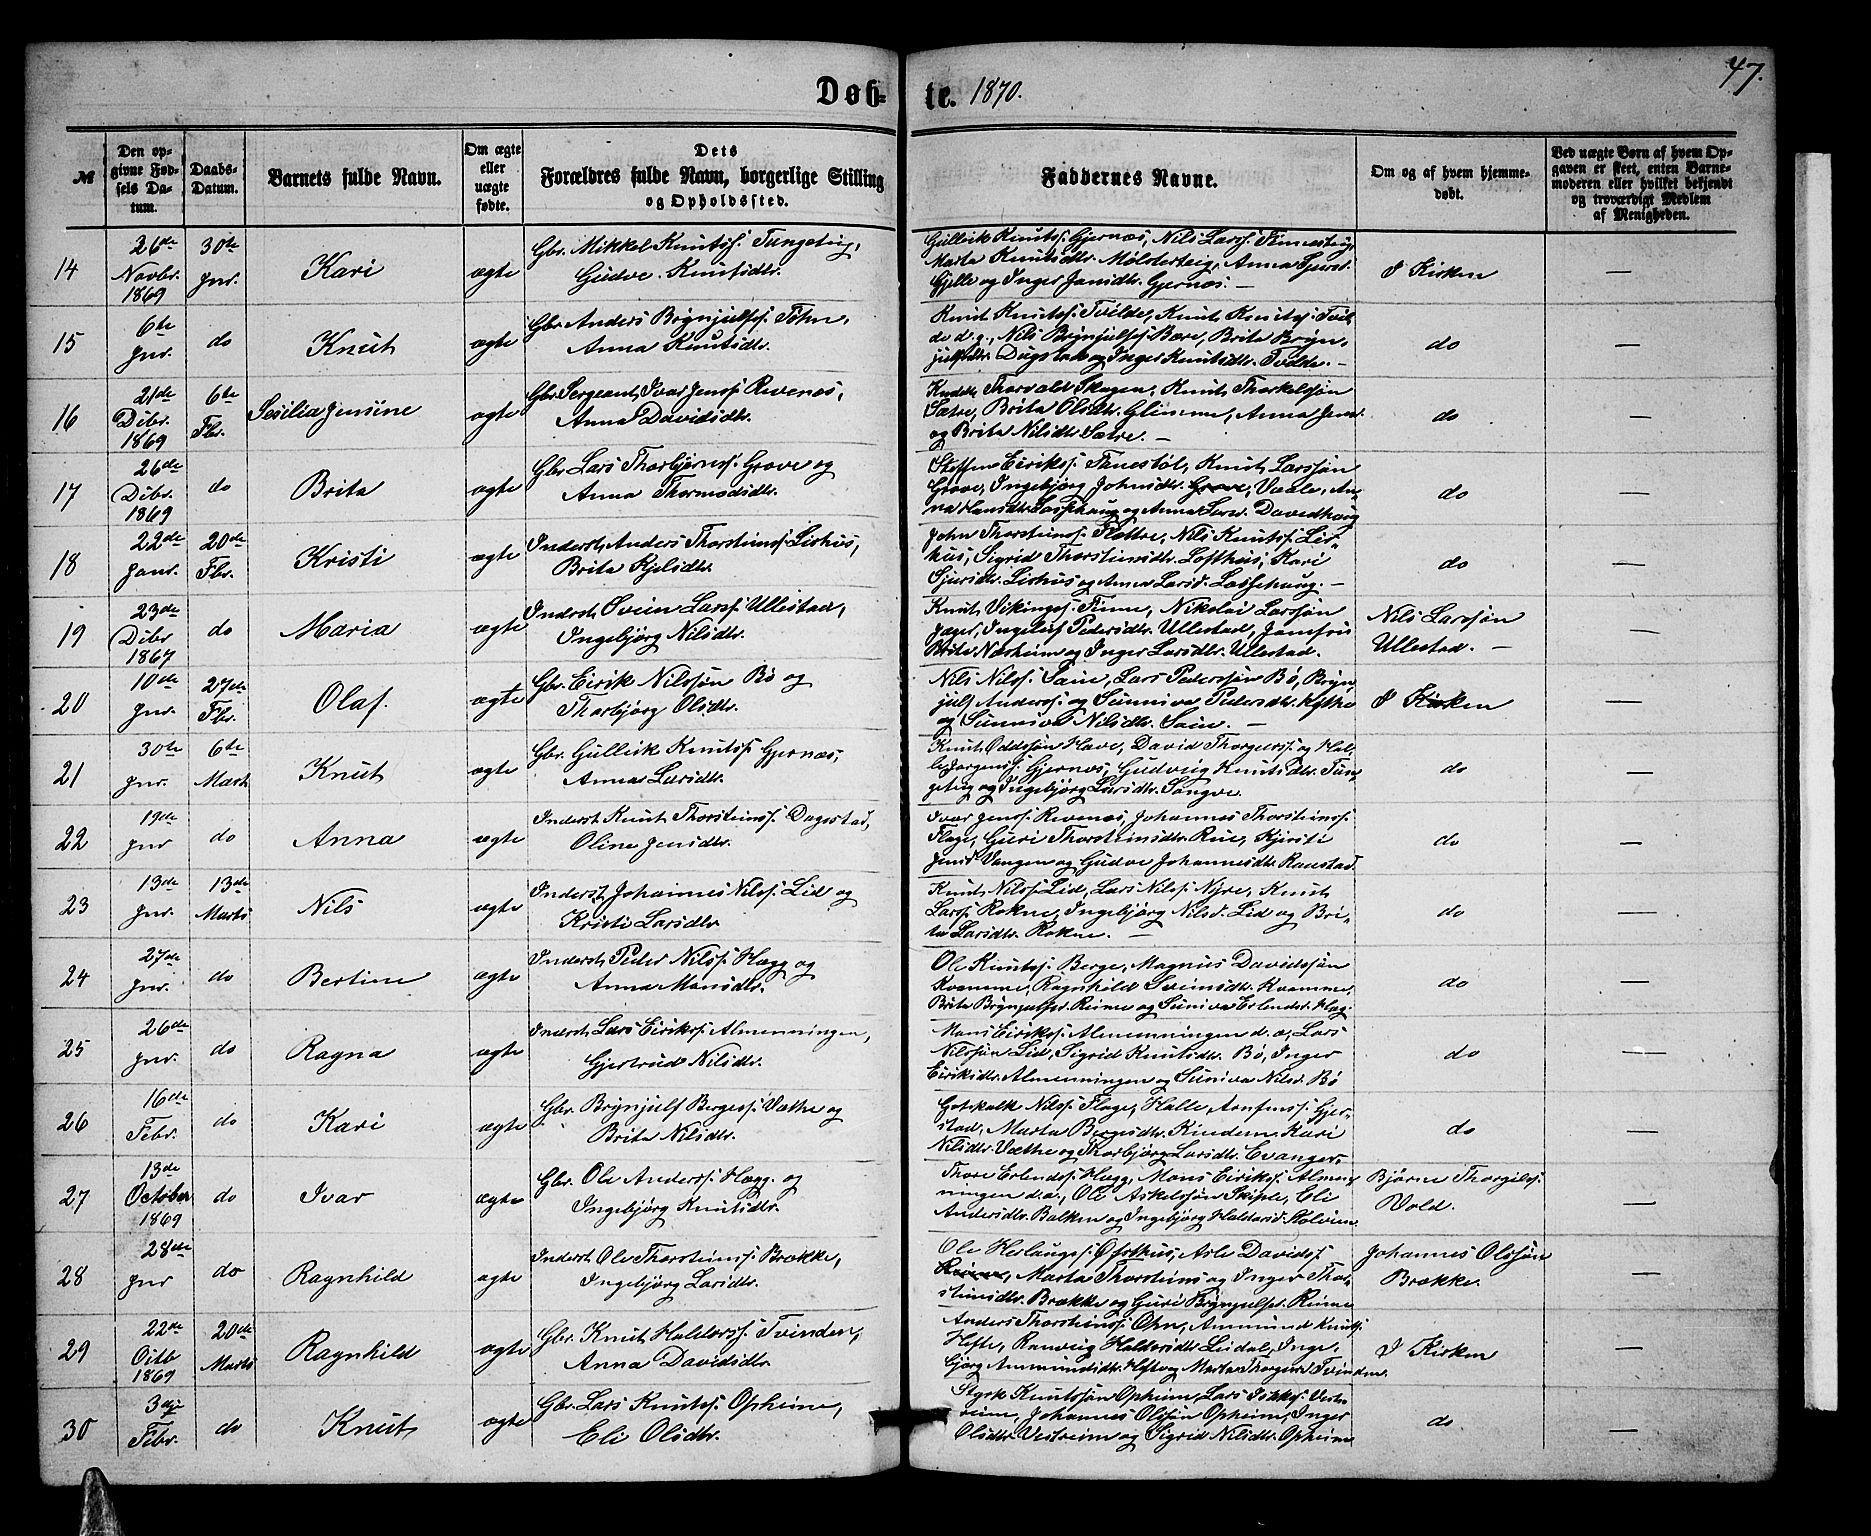 47.
Døbte. 1870.
№
Den opgivne Fødsels Datum.
Daabs-Datum.
Barnets fulde Navn.
Om ægte eller uægte fødte.
Dets Forældres fulde Navn, borgerlige Stilling og Opholdssted.
Faddernes Navne.
Om og af hvem hjemmedøbt.
Ved uægte Børn af hvem Opgaven er skeet, enten Barnemoderen eller hvilket bekjendt og troværdigt Medlem af Menigheden.
14
26de Novbr. 1869
30te Jnr.
Kari
ægte
Gbr. Mikkel Knutss. Tungeteig,
Gudve Knutsdtr.
Gulleik Knutss. Gjernæs, Nils Larss.
Marta Knutsdtr. Mølsterteig, Anna
Gjelle og Inger Jansdtr. Gjernæs. —
I Kirken
—
15
6te Jnr.
do
Knut
ægte
Gbr. Anders Brynjulfss. Føhn,
Anna Knutsdtr.
Knut Knutss. Tvilde, Knut Knutss. Tvil-
de d.y., Nils Brynjulfss. Bære, Brita Bryn-
julfsdtr. Dagstad og Inger Knutsdtr. Tvilde. —
do
—
16
21de Dcbr. 1869
6te Fbr.
Sesilia Jensine
ægte
Gbr. Sergeant Ivar Jenss. Revenæs,
Anna Davidsdtr.
Thorvald Skogen, Knut Thorkelsøn
Sætre, Brita Olsdtr. Glimme, Anna Jens
og Brita Nilsdtr. Sætre. —
do
—
17
26de Dcbr. 1869
do
Brita
ægte
Gbr. Lars Thorbjørnss. Grove og
Anna Thormodsdtr.
Steffen Eirikss. Tanestøl, Knut Larssøn
Grove, Ingebjørg Johnsdtr. Grove, An-
na Hansdtr. Lassehaug og Anna Larsd. Davidhaug
do
—
18
22de Janr.
20de Fbr.
Kristi
ægte
Inderst, Anders Thorsteinss. Lirhus,
Brita Kjelsdtr.
John Thorsteinss. Flattre, Nils Knutss. Lir-
hus, Sigrid Thorsteinsdtr. Lofthus, Kari
Sjursdtr. Lirhus og Anna Larsd. Lassehaug. —
do
—
19
23de Dcbr. 1867
do
Maria
ægte
Inderst, Svein Larss. Ullestad,
Ingebjørg Nilsdtr.
Knut Vikingss. Finne, Nikolai Larssøn
Jæger, Ingeleif Pedersdtr. Ullestad, Jomfru
Brita Nærheim og Inger Larsdtr. Ullestad.
Nils Larssøn
Ullestad. —
—
20
10de Jnr.
27de Fbr.
Olaf.
ægte
Gbr. Eirik Nilssøn Bø og
Thorbjørg Olsdtr.
Nils Nilss. Saue, Lars Pederssøn Bø, Bryn-
julf Anderss. og Sunniva Pedersdtr. Kythe
og Sunniva Nilsdtr. Saue. —
I Kirken
—
21
30te Jnr.
6te Marts
Knut
ægte
Gbr. Gulleik Knutss. Gjernæs,
Anna Larsdtr.
Knut Oddssøn Have, David Thorgeirss. og Hal-
le Jørgenss. Gjernæs, Gudveig Knutsdtr. Tun-
geteig og Ingebjørg Larsdtr. Songve.
do
—
22
19de Jnr
do
Anna
ægte
Inderst. Knut Thorsteinss. Dagestad,
Oline Jensdtr.
Ivar Jenss. Revenæs, Johannes Thorsteinss.
Flage, Guri Thorsteinsdtr. Rue, Kjersti
Jensd. Vangen og Gudve Johannesdtr. Raustad.
do
—
23
13de Jnr.
13de Marts
Nils
ægte
Inderst, Johannes Nilss. Lid og
Kristi Larsdtr
Knut Nilss. Lid, Lars Nilss. Nyre, Knut
Larss. Rokne, Ingebjørg Nilsd. Lid og Bri-
ta Larsdtr. Rokne. —
do
—
24
27de Jnr.
do
Bertine
ægte
Inderst, Peder Nilss. Hægg og
Anna Monsdtr.
Ole Knutss. Berge, Magnus Davidssøn
Kvamme, Ragnhild Sveinsdtr. Kvamme,
Brita Brynjulfsd. Rinne og Suniva Erlendsd. Hæg.
do
—
25
26de Jnr.
do
Ragna
ægte
Inderst, Lars Eirikss. Almenningen,
Gjertrud Nilsdtr.
Mons Eirikss. Almenningen d. æ, Lars
Nilssøn Lid, Sigrid Knutsdtr. Bø, Inger
Eiriksdtr. Almenningen og Suniva Nilsd. Bø
do
—
26
16de Febr.
do
Kari
ægte
Gbr. Brynjulf Bergess. Væthe og
Brita Nilsdtr.
Gotskalk Nilss. Flage, Halle Arnfinss. Gjer-
stad, Marta Bergesdtr. Kindem, Kari
Nilsdtr. Væthe og Thorbjørg Larsdtr. Evanger.
do
—
27
13de October 1869
do
Ivar
ægte
Gbr. Ole Anderss. Hægg. og
Ingebjørg Knutsdtr.
Thore Erlendss. Hægg, Mons Eirikss. Almen-
ningen d.æ., Ole Askelssøn Skiple, Eli
Andersdtr. Balken og Ingebjørg Haldorsd. Kolvien
Bjørne Thorgilss.
Vold.
—
28
28de Jnr
do
Ragnhild
ægte
Inderst Ole Thorsteinss. Brække,
Ingebjørg Larsdtr.
Ole Herlaugss. Øfsthus, Asle Davidss.
Rinne, Marta Thorsteins og Inger Thor-
steinsdtr. Brække og Guri Brynjulfsd. Rinne
Johannes Olssøn
Brække.
—
29
22de Octb 1869
20de Marts
Ragnhild
ægte
Gbr. Knut Haldorss. Tvinden,
Anna Davidsdtr.
Anders Thorsteinss. Ohn, Ammund Knuts.
Hefte, Ranveig Haldorsdtr. Leidal, Inge-
bjørg Ammundsdtr. Hefte og Marta Thorgersd. Tvinden.
I Kirken
—
30
3dje Febr.
do
Knut
ægte
Gbr. Lars Knutss. Opheim,
Eli Olsdtr.
Styrk Knutssøn Opheim, Lars Isakss. Vest-
reim, Johannes Olssøn Opheim, Inger
Olsdtr. Vestreim og Sigrid Nilsdtr. Opheim
do
—